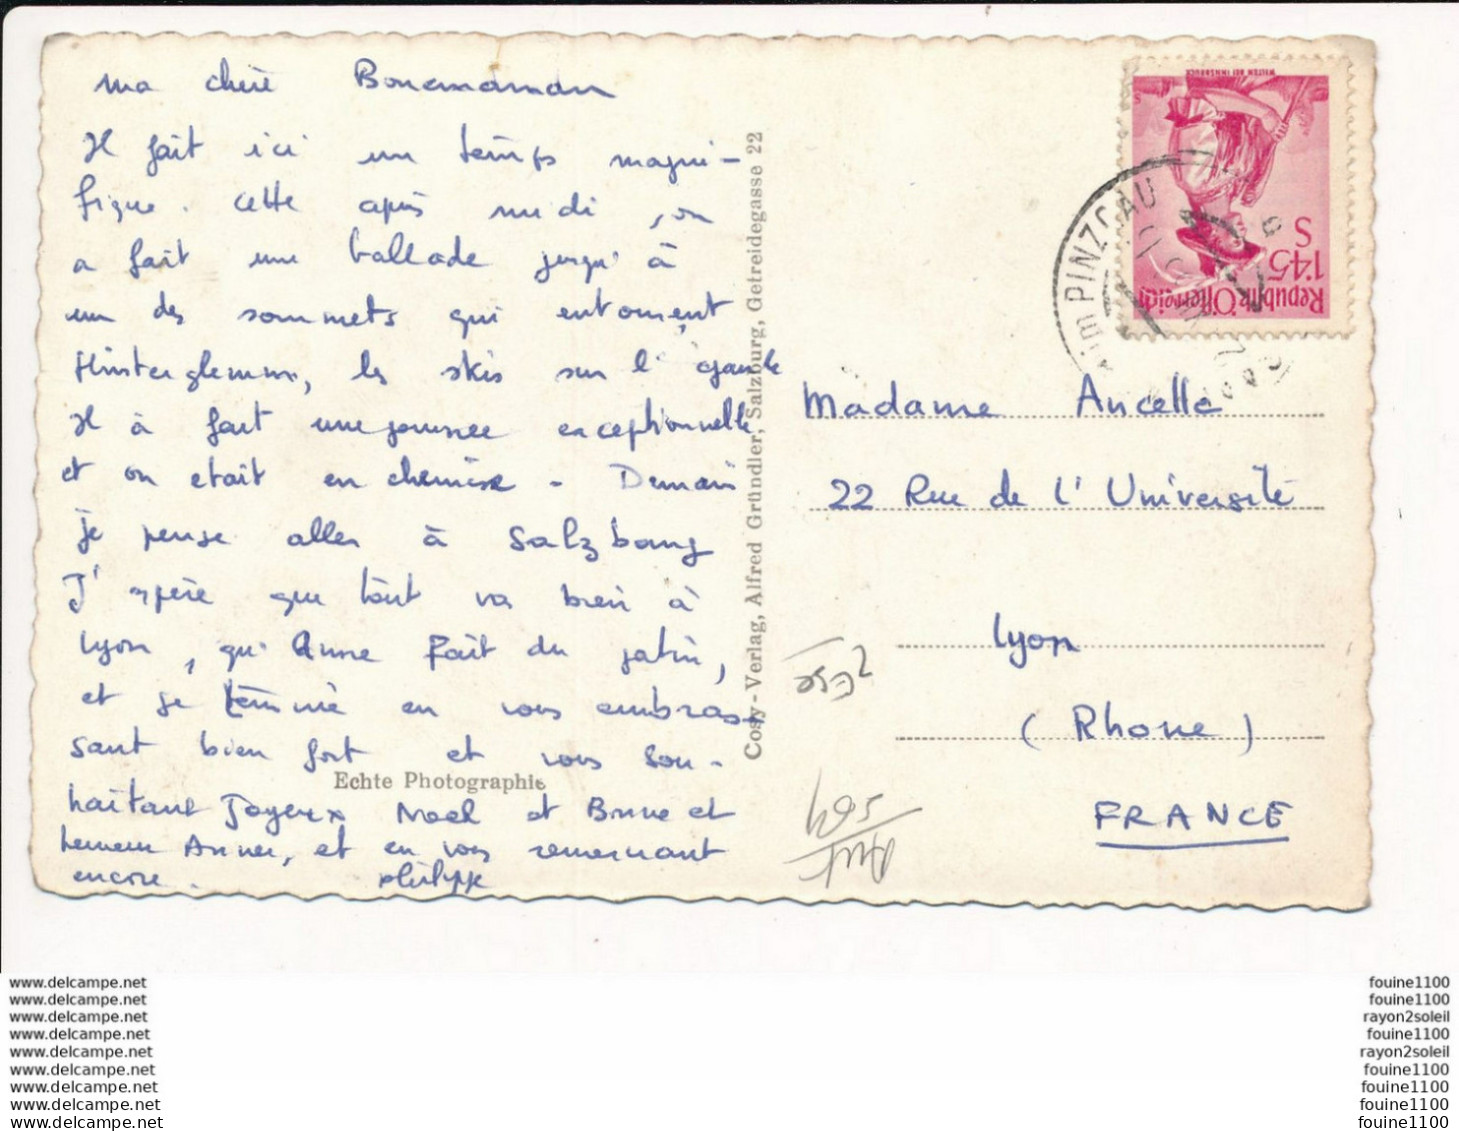 ma chère Bonemaman
Il fait ici un temps magni-
fique. cette après midi, on
a fait une ballade jusqu'à
un des sommets qui entourent
Hinterglemm, les skis sur l'épaule
Il à fait une journée exceptionnelle
et on etait en chemise - Demain
je pense aller à Salzbourg
J'espère que tout va bien à
Lyon, qu'Anne fait du patin,
et je termine en vous embras-
sant bien fort et vous sou-
haitant Joyeux Noel et Bonne et
heureuse Annee, et en vous remerciant
encore. philippe
Echte Photographie
Cosy-Verlag, Alfred Gründler, Salzburg, Getreidegasse 22
WILTEN BEI INNSBRUCK
S
1'45
Republik Österreich
im PINZGAU
Madame Ancelle
22 Rue de L'Université
Lyon
(Rhone)
FRANCE
564
Aut
www.delcampe.net
www.delcampe.net
www.delcampe.net
www.delcampe.net
www.delcampe.net
www.delcampe.net
www.delcampe.net
www.delcampe.net
www.delcampe.net
fouine1100
fouine1100
rayon2soleil
fouine1100
rayon2soleil
fouine1100
fouine1100
fouine1100
fouine1100